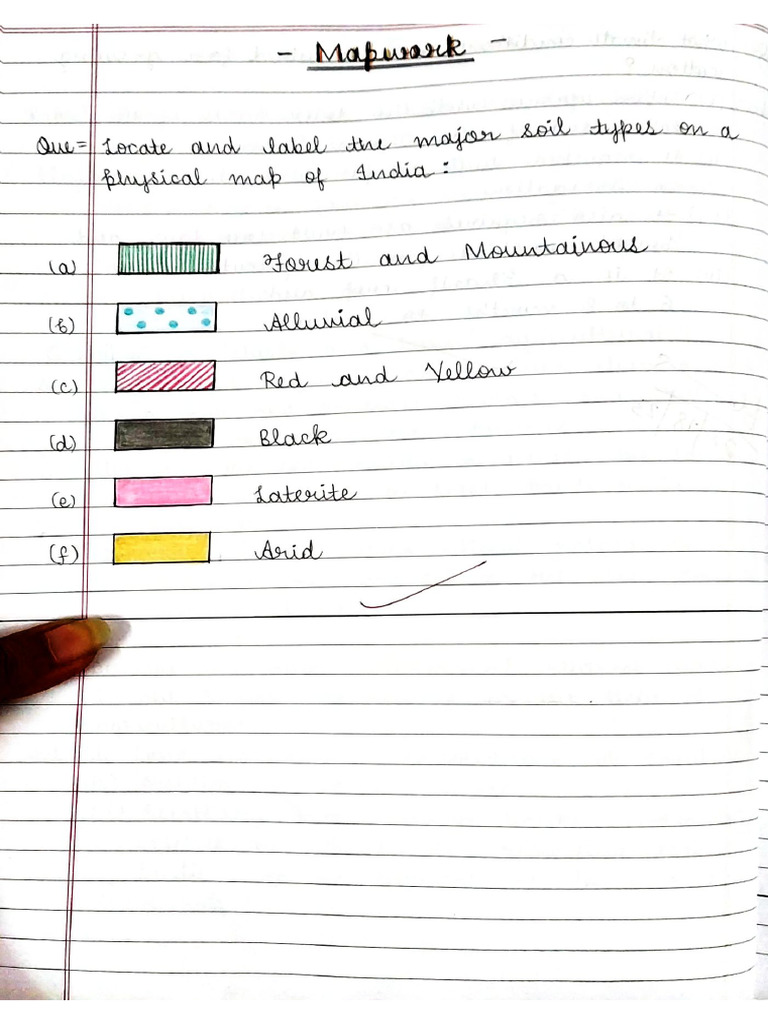 - Mapwork -
Que = Locate and label the major soil types on a
physical map of India :
(a) Forest and Mountainous
(b) Alluvial
(c) Red and Yellow
(d) Black
(e) Laterite
(f) Arid